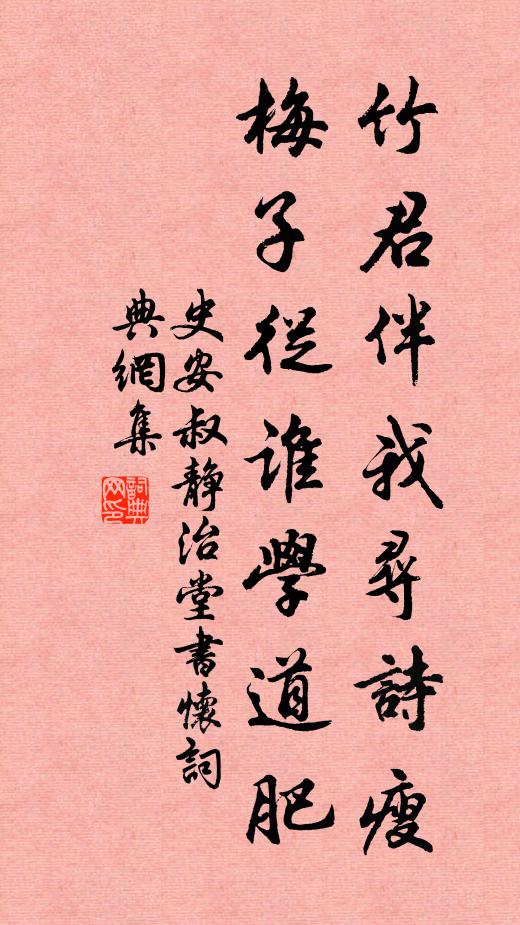 竹君伴我尋詩瘦
梅子從誰學道肥
史安叔靜治堂書懷詞
典網集
詞典
网印